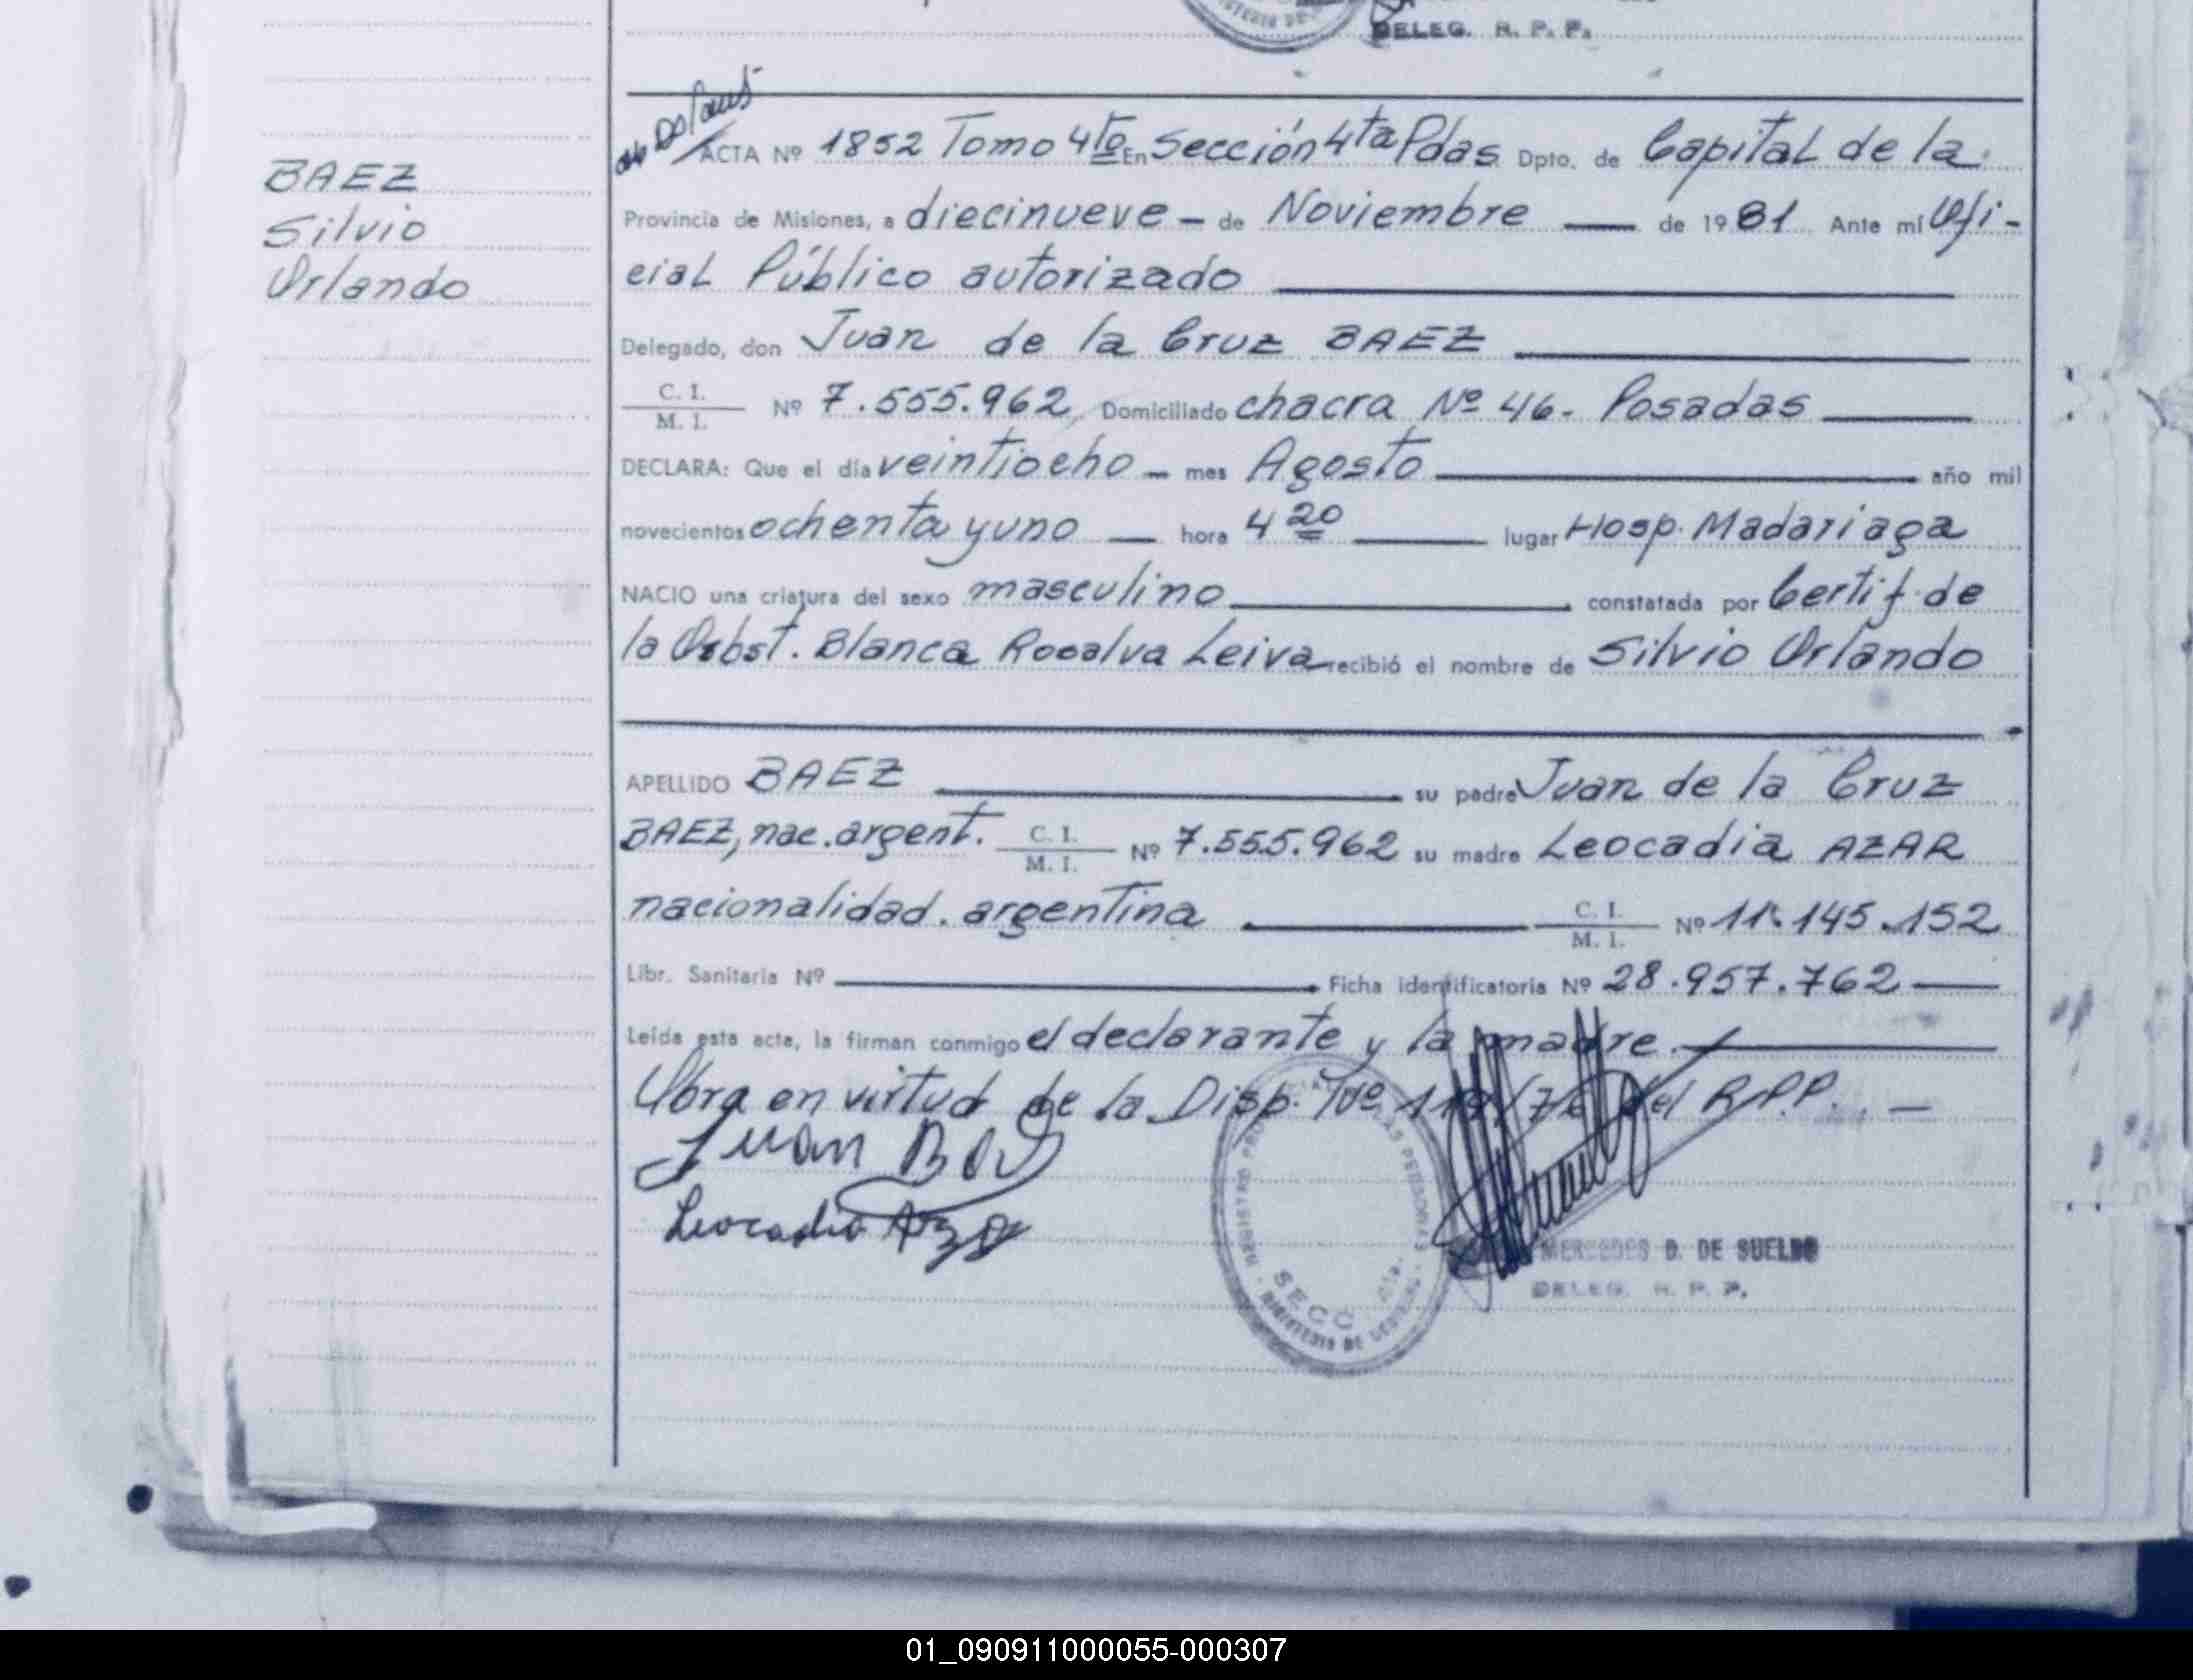 DELEG. R. P. P.
BAEZ
Silvio
Orlando
ACTA Nº 1852 Tomo 4to En Sección 4ta Pdas Dpto. de Capital de la
Provincia de Misiones, a diecinueve — de Noviembre — de 1981 Ante mí Ofi-
cial Público autorizado
Delegado, don Juan de la Cruz BAEZ
C. I.
M. I. Nº 7.555.962 Domiciliado chacra Nº 46. Posadas
DECLARA: Que el día veintiocho — mes Agosto — año mil
novecientos ochenta y uno — hora 4 20 — lugar Hosp. Madariaga
NACIO una criatura del sexo masculino — constatada por Certif. de
la Obst. Blanca Rosalva Leiva recibió el nombre de Silvio Orlando
APELLIDO BAEZ — su padre Juan de la Cruz
BAEZ, nac. argent. C. I. M. I. Nº 7.555.962 su madre Leocadia AZAR
nacionalidad. argentina — C. I. M. I. Nº 11.145.152
Libr. Sanitaria Nº — Ficha identificatoria Nº 28.957.762 —
Leída esta acta, la firman conmigo el declarante y la madre. —
Obra en virtud de la Disp. Nº del R.P.P. —
Juan
Leocadia
SECC
MERCEDES D. DE SUELDO
DELEG. R. P. P.
01_090911000055-000307